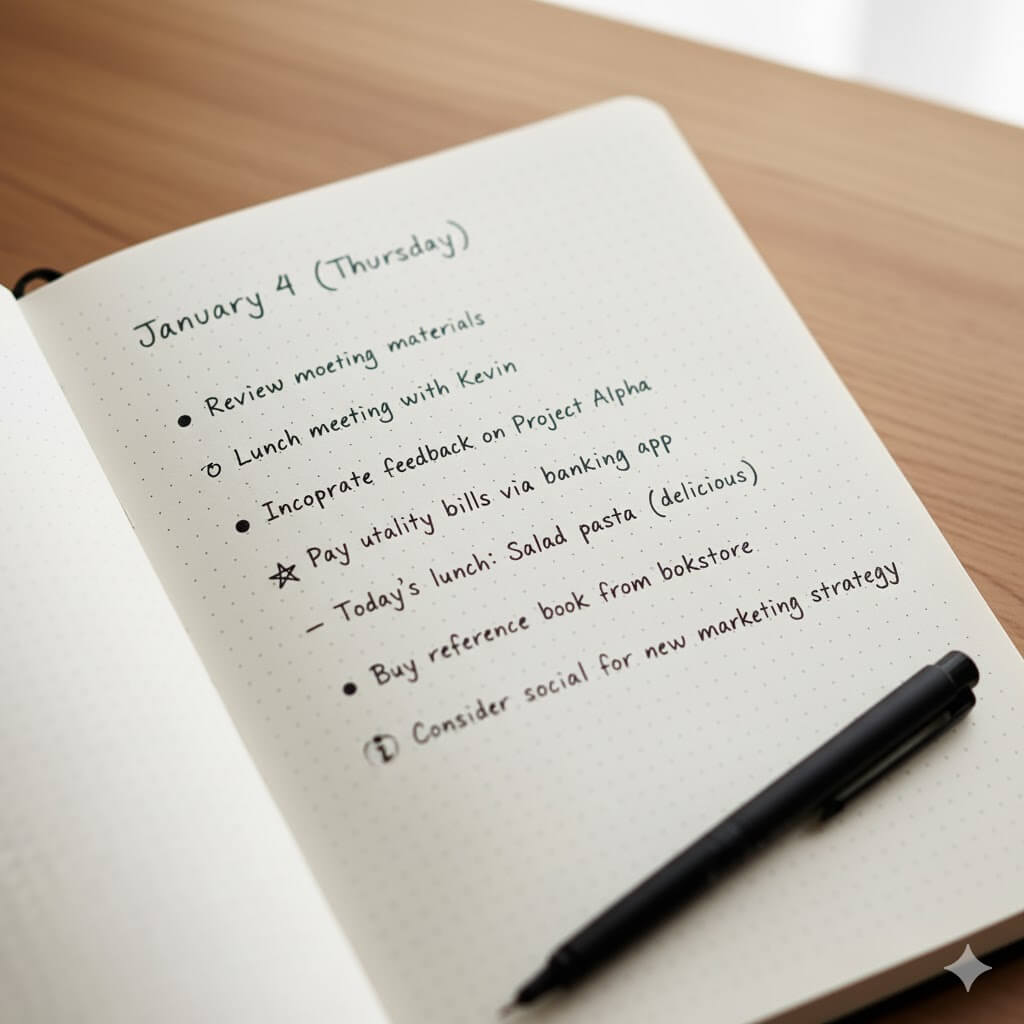 January 4 (Thursday)
● Review moeting materials
○ Lunch meeting with Kevin
● Incoprate feedback on Project Alpha
☆ Pay utality bills via banking app
— Today's lunch: Salad pasta (delicious)
● Buy reference book from bokstore
ⓘ Consider social for new marketing strategy